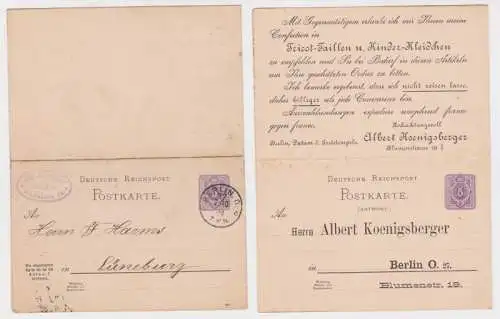 DEUTSCHE REICHSPOST
POSTKARTE.
BERLIN
An
Herrn W Harms
in Lüneburg
Mit Gegenwärtigem erlaube ich mir Ihnen meine
Confection in
Tricot-Taillen u. Kinder-Kleidchen
zu empfehlen und Sie bei Bedarf in diesen Artikeln
um Ihre geschätzten Ordres zu bitten.
Ich bemerke ergebenst, dass ich nicht reisen lasse,
daher billiger als jede Concurrenz bin.
Auswahlsendungen expedire umgehend franco
gegen franco.
Hochachtungsvoll
Albert Koenigsberger
Berlin, Datum d. Poststempels.
Blumenstrasse 18
DEUTSCHE REICHSPOST
POSTKARTE.
(ANTWORT)
5
An
Herrn Albert Koenigsberger
in
Berlin O. 27.
Blumenstr. 18.